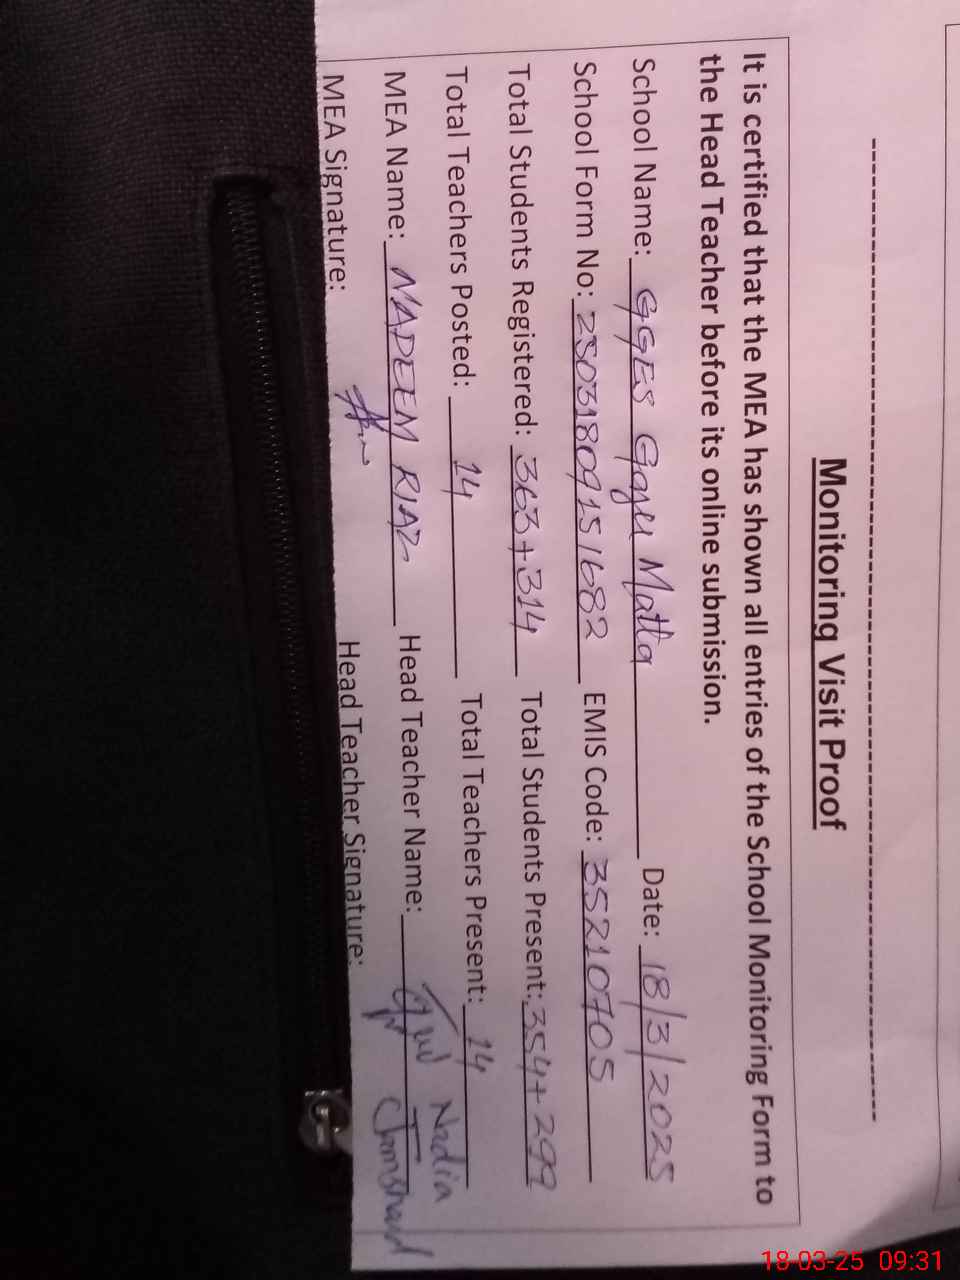 Monitoring Visit Proof
It is certified that the MEA has shown all entries of the School Monitoring Form to
the Head Teacher before its online submission.
School Name: GGES Gajju Matta Date: 18/3/2025
School Form No: 25031809151682 EMIS Code: 35210705
Total Students Registered: 363+314 Total Students Present: 354+299
Total Teachers Posted: 14 Total Teachers Present: 14
MEA Name: NADEEM RIAZ Head Teacher Name: Nadia Jamshaid
MEA Signature: Head Teacher Signature:
18-03-25 09:31